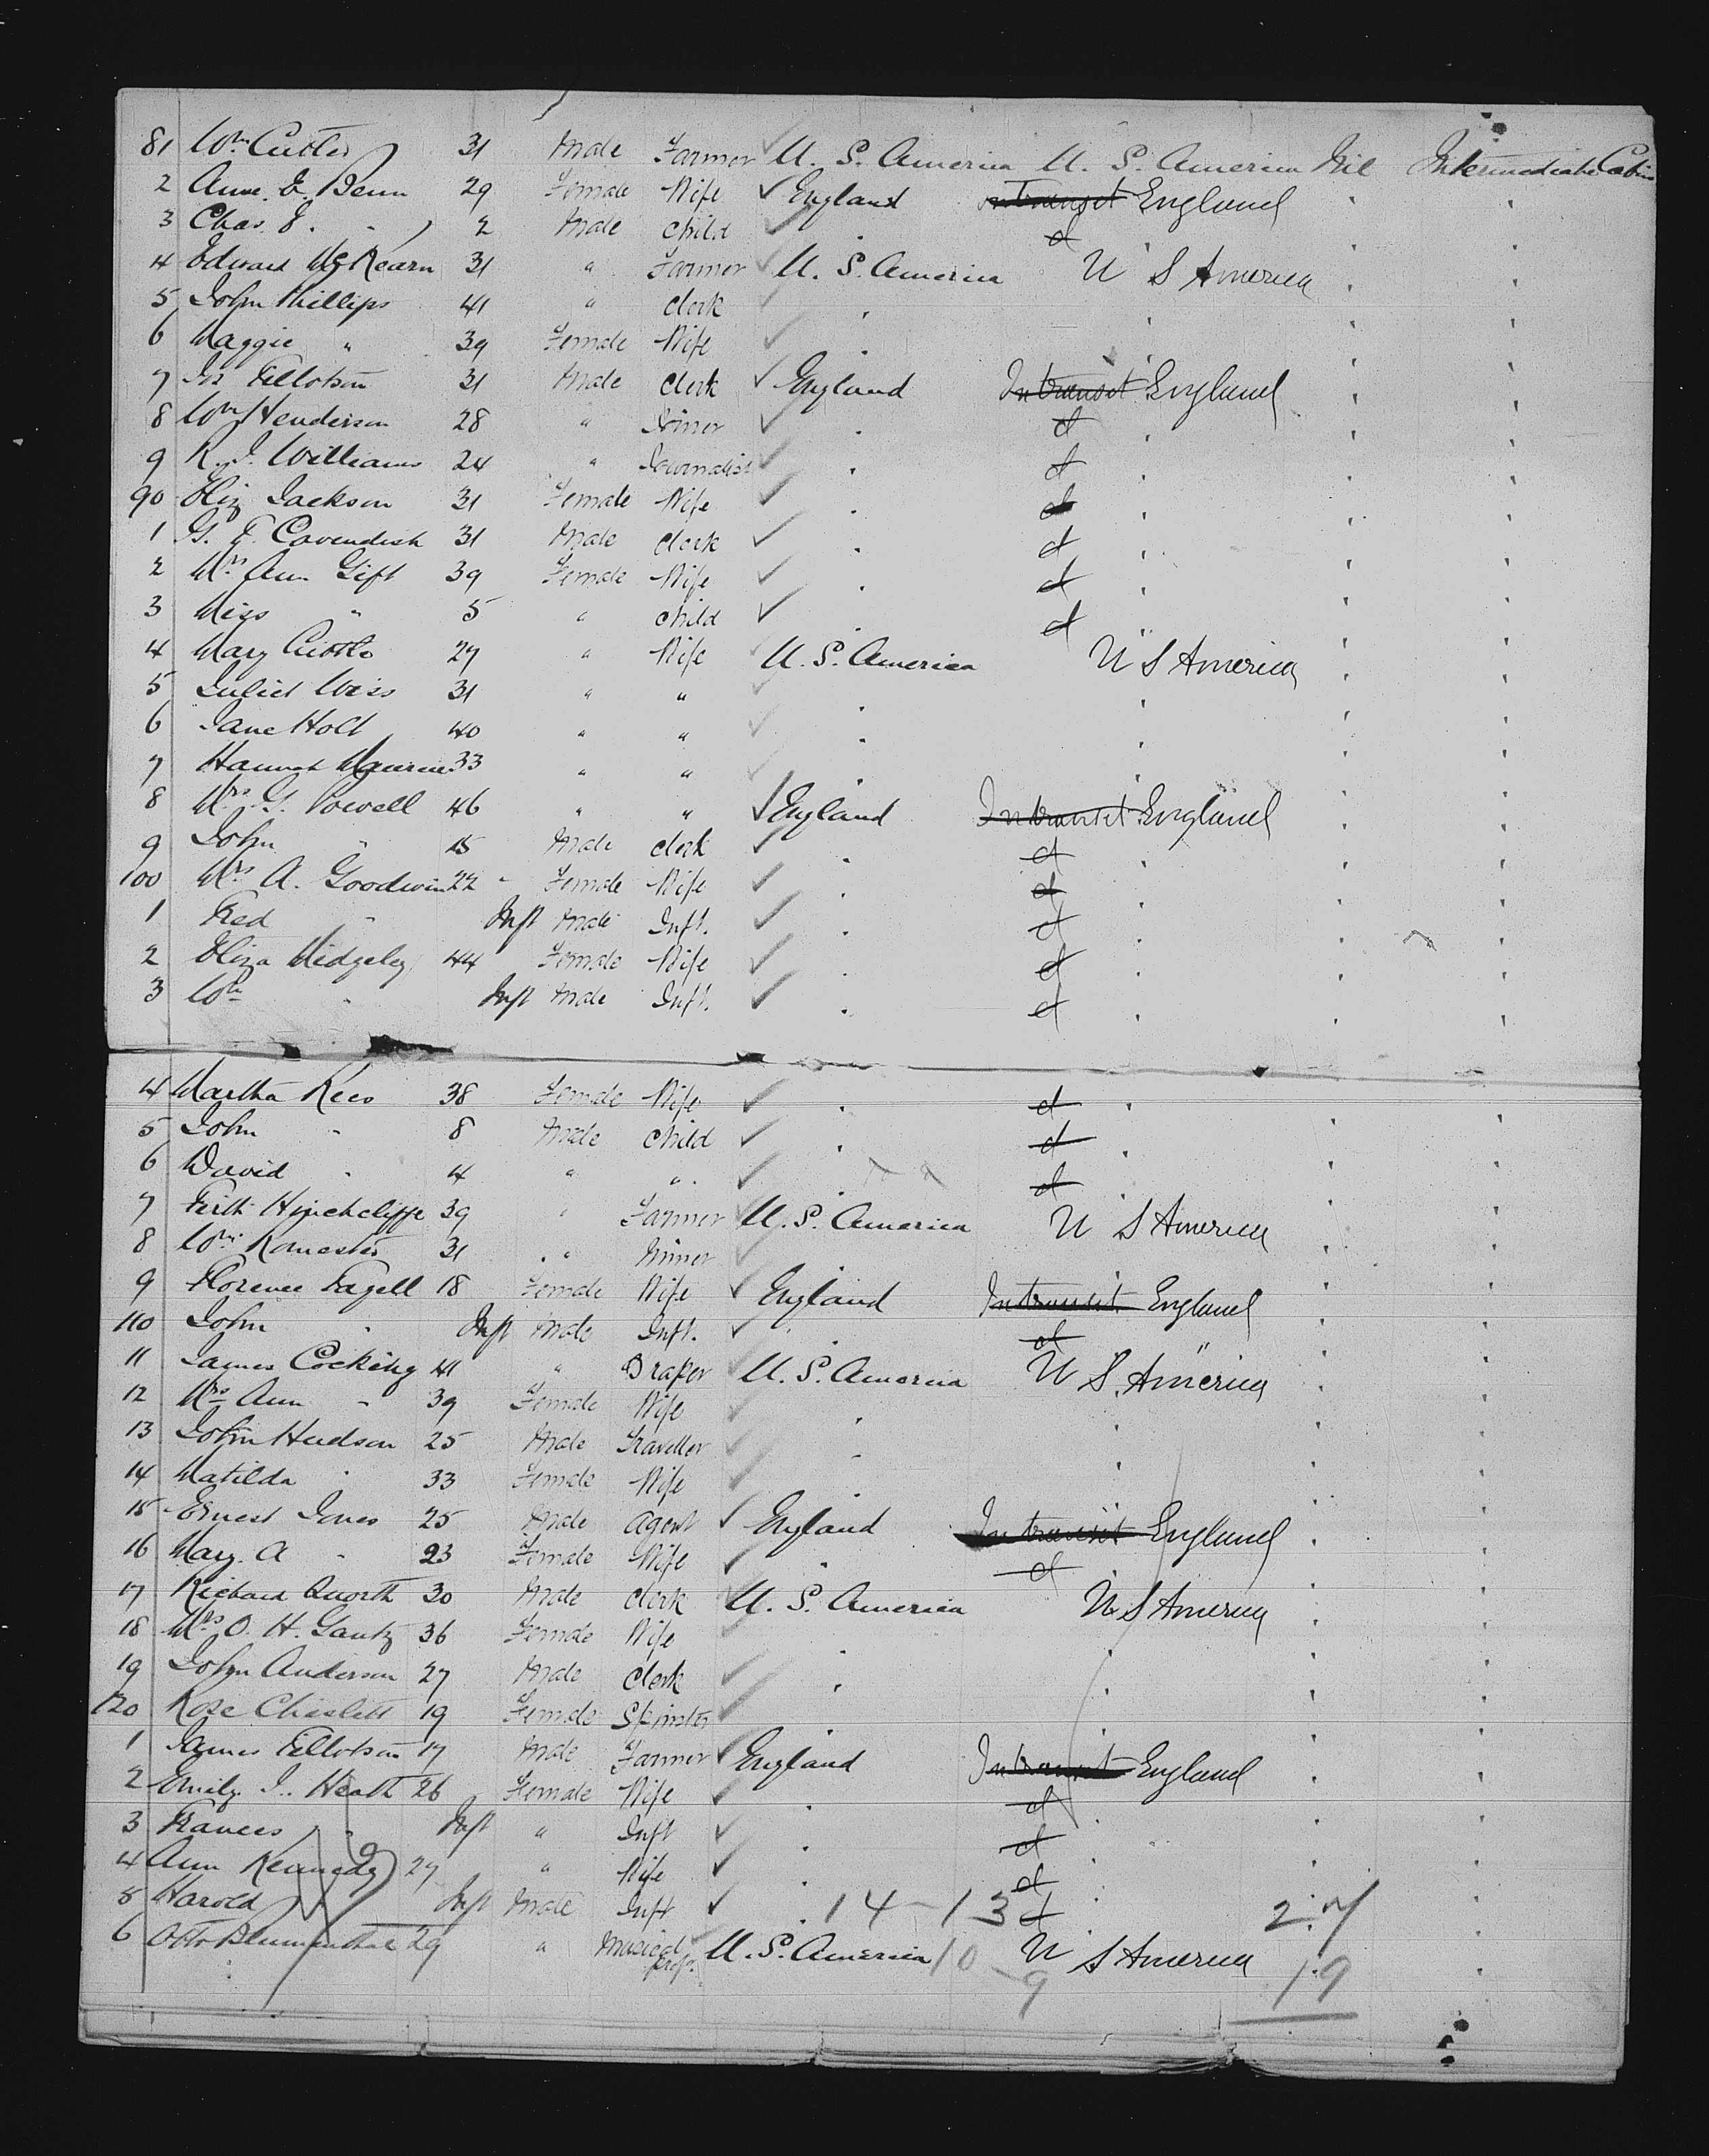 81 Wm Cutler 31 Male Farmer U. S. America U. S. America Nil Intermediate Cabin
2 Anne. E. Benn 29 Female Wife ✓ England Intransit England "
3 Chas. E. " 2 Male Child ✓ " d "
4 Edward McKearn 31 " Farmer ✓ U. S. America U S America "
5 John Phillips 41 " Clerk ✓ " "
6 Maggie " 39 Female Wife ✓ " "
7 Jno Tillotson 31 Male Clerk ✓ England Intransit England "
8 Wm Henderson 28 " Joiner ✓ " d "
9 R. J. Williams 24 " Journalist ✓ " d "
90 Eliz Jackson 31 Female Wife ✓ " d "
1 G. F. Cavendish 31 Male Clerk ✓ " d "
2 Mrs Ann Gift 39 Female Wife ✓ " d "
3 Miss " 5 " Child ✓ " d "
4 Mary 27 " Wife ✓ U. S. America U S America "
5 Juliet Weiss 31 " " ✓ " "
6 Jane Holt 40 " " ✓ " "
7 Hannah 33 " " ✓ " "
8 Mrs. G. Powell 46 " " ✓ England Intransit England "
9 John " 15 Male Clerk ✓ " d "
100 Mrs A. Goodwin 22 Female Wife ✓ " d "
1 Fred " Inft Male Inft. ✓ " d "
2 Eliza Midgeley 44 Female Wife ✓ " d "
3 Wm " Inft Male Inft. ✓ " d "
4 Martha Rees 38 Female Wife ✓ " d "
5 John " 8 Male Child ✓ " d "
6 David " 4 " " ✓ " d "
7 Firth Hinchcliffe 39 " Farmer ✓ U. S. America U S America "
8 Wm 31 " Miner ✓ " "
9 Florence Fagell 18 Female Wife ✓ England Intransit England "
110 John " Inft Male Inft. ✓ " d "
11 James Cocking 41 " Draper ✓ U. S. America U S. America "
12 Mrs Ann " 39 Female Wife ✓ " "
13 John Hudson 25 Male Traveller ✓ " "
14 Matilda " 33 Female Wife ✓ " "
15 Ernest Jones 25 Male Agent ✓ England Intransit England "
16 Mary. A " 23 Female Wife ✓ " d
17 Richard Quorth 30 Male Clerk ✓ U. S. America U S America "
18 Mrs O. H. Gantz 36 Female Wife ✓ " "
19 John Anderson 27 Male Clerk ✓ " "
120 Rose Chislett 19 Female Spinster ✓ " "
1 James Tillotson 17 Male Farmer ✓ England Intransit England "
2 Emily. J. Heath 26 Female Wife ✓ " d "
3 Frances " Inft " Inft ✓ " d "
4 Ann Kennedy 27 " Wife ✓ " d "
5 Harold " Inft Male Inft ✓ " 14 - 13 d " 27
6 Otto Blumenthal 29 " Musical Prof. ✓ U. S. America 10 - 9 U S America 19